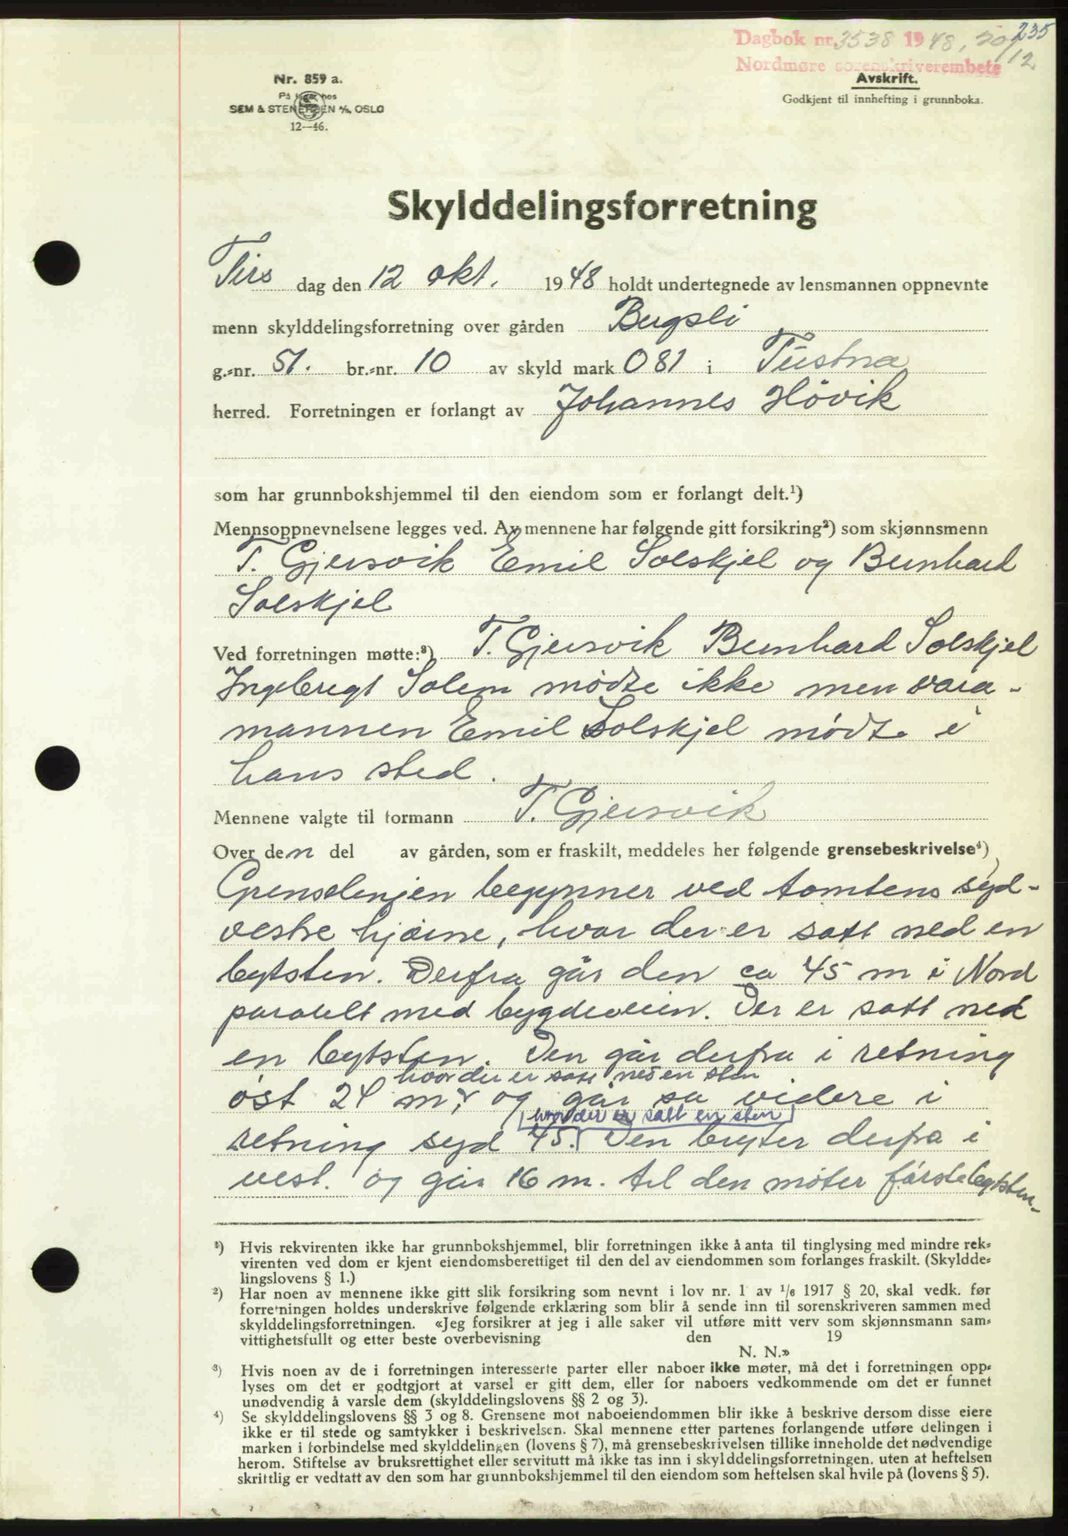 235
Dagbok nr. 3538 1948, 20/12
Nordmøre sorenskriverembete
Avskrift.
Godkjent til innhefting i grunnboka.
Nr. 859 a.
På lager hos
SEM & STENERSEN A/S, OSLO
12—46.
Skylddelingsforretning
Tirs dag den 12 okt. 1948 holdt undertegnede av lensmannen oppnevnte
menn skylddelingsforretning over gården Bergsli
g.-nr. 51. br.-nr. 10 av skyld mark 0 81 i Tustna
herred. Forretningen er forlangt av Johannes Hövik
som har grunnbokshjemmel til den eiendom som er forlangt delt.¹)
Mennsoppnevnelsene legges ved. Av mennene har følgende gitt forsikring²) som skjønnsmenn
T. Gjersvik Emil Solskjel og Bernhard
Solskjel
Ved forretningen møtte:³) T. Gjersvik Bernhard Solskjel
Ingebrigt Solem mødte ikke men vara-
mannen Emil Solskjel mødte i
hans sted.
Mennene valgte til formann T. Gjersvik
Over den del av gården, som er fraskilt, meddeles her følgende grensebeskrivelse⁴)
Grenselinjen begynner ved tomtens syd-
vestre hjørne, hvor der er satt ned en
bytsten. Derfra går den ca 45 m i Nord
paralelt med bygdeveien. Der er satt ned
en bytsten. Den går derfra i retning
hvor der er satt ned en sten
øst 24 m, og går sa videre i
hvor der er satt en sten
retning syd 45. Den bryter derfra i
vest. og går 16 m. til den møter første bytsten-
¹) Hvis rekvirenten ikke har grunnbokshjemmel, blir forretningen ikke å anta til tinglysing med mindre rek-
virenten ved dom er kjent eiendomsberettiget til den del av eiendommen som forlanges fraskilt. (Skyldde-
lingslovens § 1.)
²) Har noen av mennene ikke gitt slik forsikring som nevnt i lov nr. 1 av 1/6 1917 § 20, skal vedk. før
forretningen holdes underskrive følgende erklæring som blir å sende inn til sorenskriveren sammen med
skylddelingsforretningen. «Jeg forsikrer at jeg i alle saker vil utføre mitt verv som skjønnsmann sam-
vittighetsfullt og etter beste overbevisning den 19
N. N.»
³) Hvis noen av de i forretningen interesserte parter eller naboer ikke møter, må det i forretningen opp-
lyses om det er godtgjort at varsel er gitt dem, eller for naboers vedkommende om det er funnet
unødvendig å varsle dem (skylddelingslovens §§ 2 og 3).
⁴) Se skylddelingslovens §§ 3 og 8. Grensene mot naboeiendommen blir ikke å beskrive dersom disse eiere
ikke er til stede og samtykker i beskrivelsen. Skal mennene etter partenes forlangende utføre delingen i
marken i forbindelse med skylddelingen (lovens § 7), må grensebeskrivelsen tillike inneholde det nødvendige
herom. Stiftelse av bruksrettighet eller servitutt må ikke tas inn i skylddelingsforretningen, uten at heftelsen
skriftlig er vedtatt av den som har grunnbokshjemmel til den eiendom som heftelsen skal hvile på (lovens § 5).